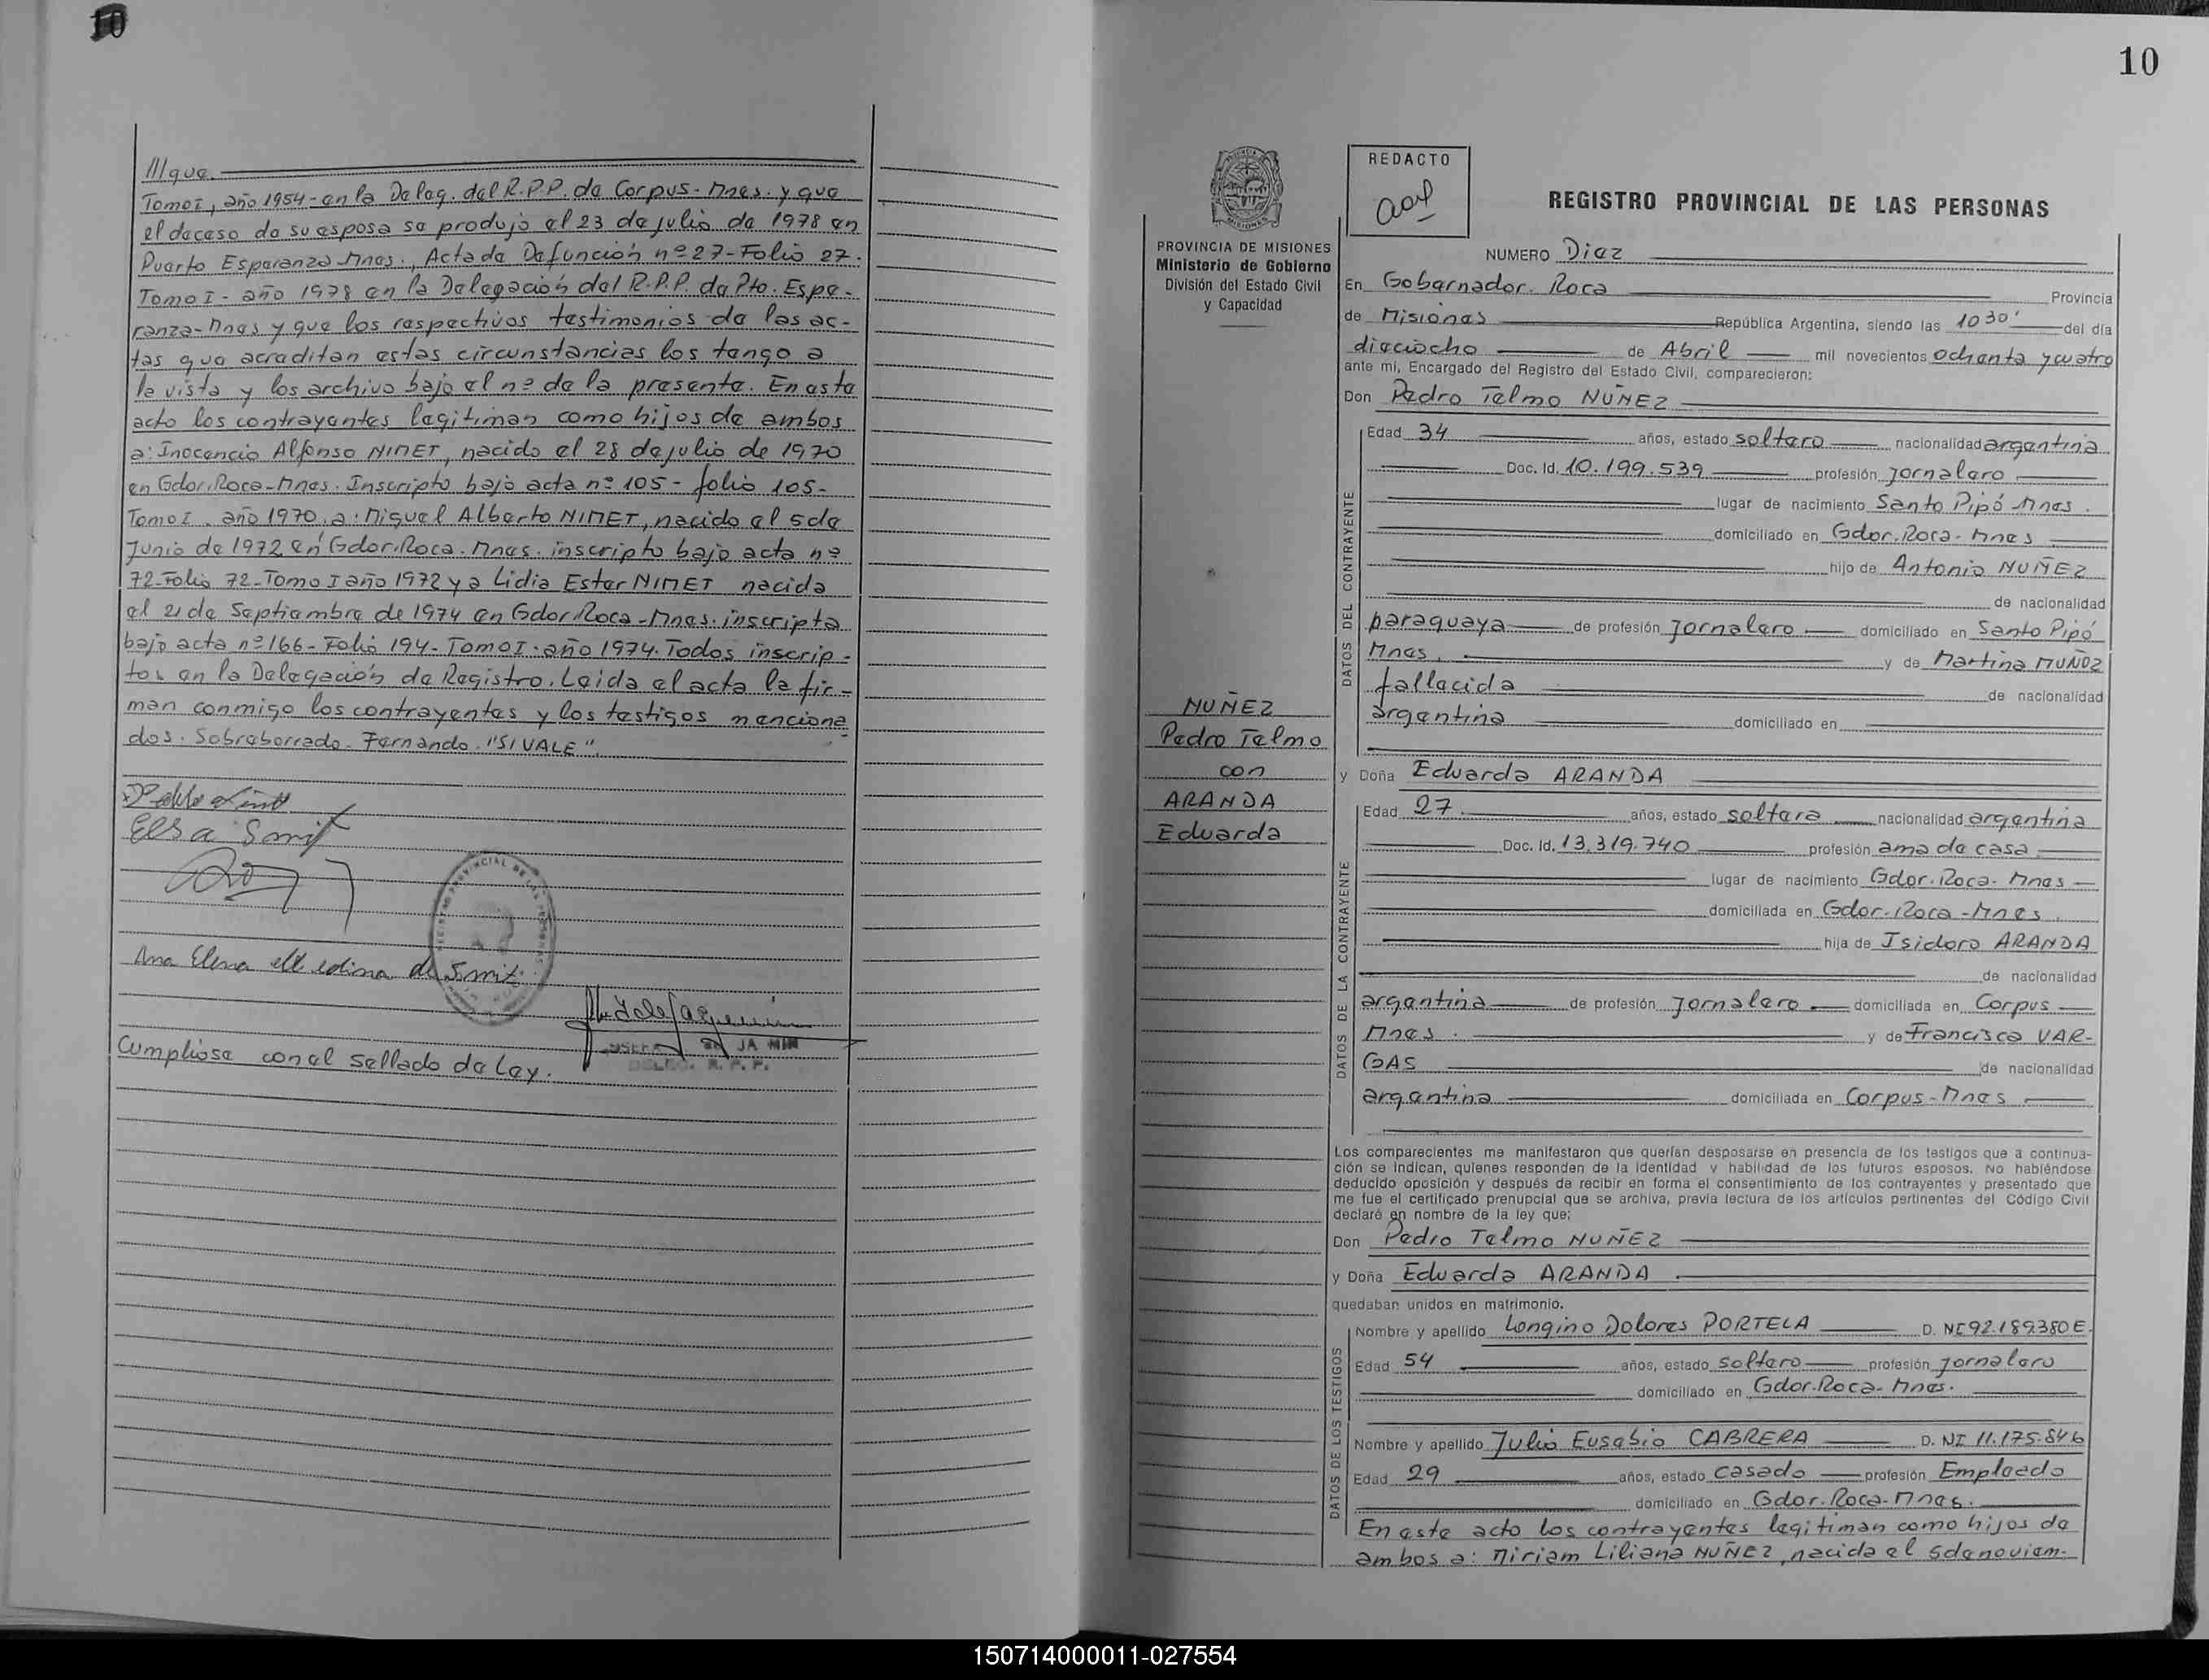 10
///que.
Tomo I, año 1954- en la Deleg. del R.P.P. de Corpus- Mnes. y que
el deceso de su esposa se produjo el 23 de julio de 1978 en
Puerto Esperanza Mnes., Acta de Defunción nº 27- Folio 27.
Tomo I - año 1978 en la Delegación del R.P.P. de Pto. Espe-
ranza- Mnes y que los respectivos testimonios de las ac-
tas que acreditan estas circunstancias los tengo a
la vista y los archivo bajo el nº de la presente. En este
acto los contrayentes legitiman como hijos de ambos
a: Inocencio Alfonso NIMET, nacido el 28 de julio de 1970
en Gdor. Roca- Mnes. Inscripto bajo acta nº 105- folio 105-
Tomo I. año 1970. a: Miguel Alberto NIMET, nacido el 5 de
Junio de 1972 en Gdor. Roca. Mnes. inscripto bajo acta nº
72- Folio 72- Tomo I año 1972 y a Lidia Ester NIMET nacida
el 21 de Septiembre de 1974 en Gdor. Roca- Mnes. inscripta
bajo acta nº 166- Folio 194- Tomo I. año 1974. Todos inscrip-
tos en la Delegación de Registro. Leída el acta la fir-
man conmigo los contrayentes y los testigos menciona
dos. Sobreborrado- Fernando. "SI VALE".
Elsa Smit
Ana Elena Medina de Smit.
Cumpliose con el sellado de Ley.
DELEG. R. P. P.
10
PROVINCIA DE MISIONES
Ministerio de Gobierno
División del Estado Civil
y Capacidad
NUÑEZ
Pedro Telmo
con
ARANDA
Eduarda
REDACTO
REGISTRO PROVINCIAL DE LAS PERSONAS
NUMERO Diez
En Gobernador Roca Provincia
de Misiones República Argentina, siendo las 10 30' del día
dieciocho de Abril mil novecientos ochenta y cuatro
ante mí, Encargado del Registro del Estado Civil, comparecieron:
Don Pedro Telmo NUÑEZ
DATOS DEL CONTRAYENTE
Edad 34 años, estado soltero nacionalidad argentina
Doc. Id. 10.199.539 profesión Jornalero
lugar de nacimiento Santo Pipó Mnes.
domiciliado en Gdor. Roca- Mnes
hijo de Antonio NUÑEZ
de nacionalidad
paraguaya de profesión Jornalero domiciliado en Santo Pipó
Mnes. y de Martina MUÑOZ
fallecida de nacionalidad
argentina domiciliado en
y Doña Eduarda ARANDA
DATOS DE LA CONTRAYENTE
Edad 27 años, estado soltera nacionalidad argentina
Doc. Id. 13.319.740 profesión ama de casa
lugar de nacimiento Gdor. Roca- Mnes
domiciliada en Gdor. Roca- Mnes.
hija de Isidoro ARANDA
de nacionalidad
argentina de profesión Jornalero domiciliada en Corpus
Mnes. y de Francisca VAR-
GAS de nacionalidad
argentina domiciliada en Corpus- Mnes
Los comparecientes me manifestaron que querían desposarse en presencia de los testigos que a continua-
ción se indican, quienes responden de la identidad y habilidad de los futuros esposos. No habiéndose
deducido oposición y después de recibir en forma el consentimiento de los contrayentes y presentado que
me fue el certificado prenupcial que se archiva, previa lectura de los artículos pertinentes del Código Civil
declaré en nombre de la ley que:
Don Pedro Telmo NUÑEZ
y Doña Eduarda ARANDA
quedaban unidos en matrimonio.
DATOS DE LOS TESTIGOS
Nombre y apellido Longino Dolores PORTELA D. NI 92.189.380 E.
Edad 54 años, estado soltero profesión Jornalero
domiciliado en Gdor. Roca- Mnes.
Nombre y apellido Julio Eusebio CABRERA D. NI 11.175.846
Edad 29 años, estado casado profesión Empleado
domiciliado en Gdor. Roca- Mnes.
En este acto los contrayentes legitiman como hijos de
ambos a: Miriam Liliana NUÑEZ, nacida el 5 de noviem-
150714000011-027554